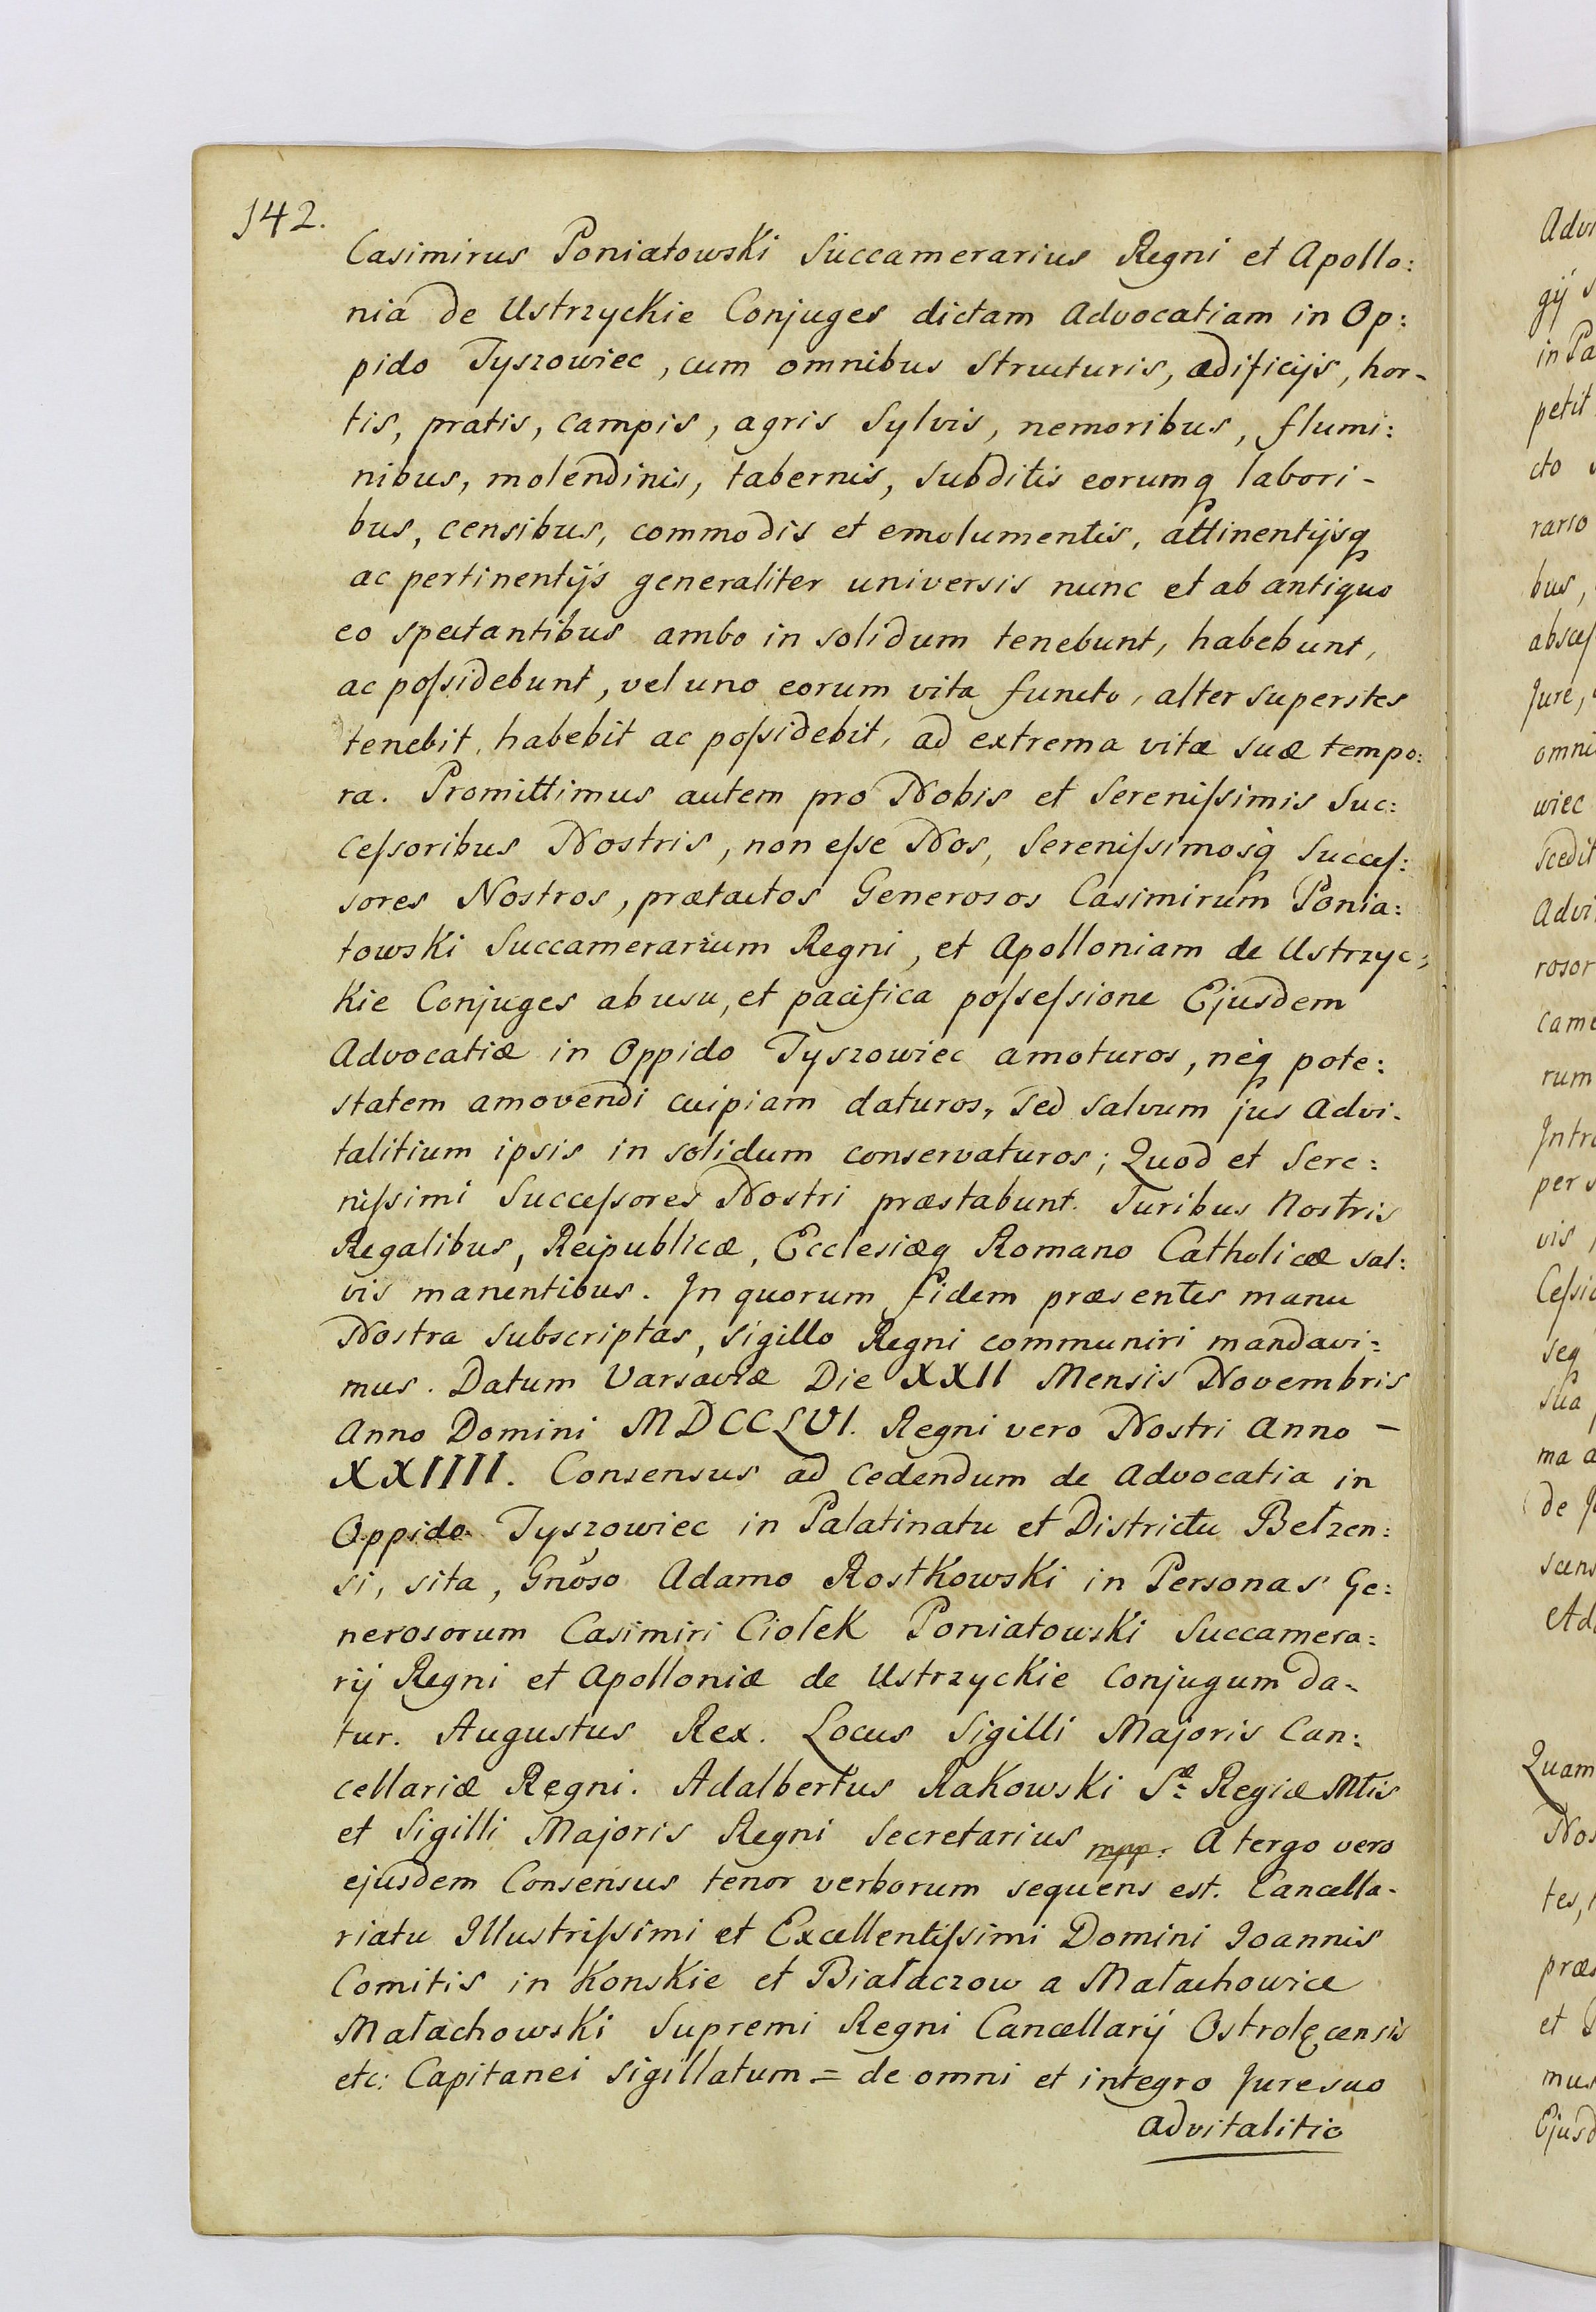 142.
Casimirus Poniatowski Succamerarius Regni et Apollo:
nia de Ustrzyckie Conjuges dictam Advocatiam in Op:
pido Tyszowiec, cum omnibus structuris, ædificijs, hor-
tis, pratis, campis, agris Sylvis, nemoribus, flumi:
nibus, molendinis, tabernis, subditis eorumq labori-
bus, censibus, commodis et emolumentis, attinentijsq
ac pertinentijs generaliter universis nunc et ab antiquo
eo spectantibus ambo in solidum tenebunt, habebunt,
ac poſsidebunt, vel uno eorum vita functo, alter superstes
tenebit, habebit ac poſsidebit, ad extrema vitæ suæ tempo:
ra. Promittimus autem pro Nobis et Sereniſsimis Suc:
ceſsoribus Nostris, non eſse Nos, Sereniſsimosq Succeſ:
sores Nostros, prætactos Generosos Casimirum Ponia:
towski Succamerarium Regni, et Apolloniam de Ustrzyc:
kie Conjuges ab usu, et pacifica poſseſsione Ejusdem
Advocatiæ in Oppido Tyszowiec amoturos, neq pote:
statem amovendi cuipiam daturos, sed salvum jus Advi-
talitium ipsis in solidum conservaturos; Quod et Sere:
niſsimi Succeſsores Nostri præstabunt. Juribus Nostris
Regalibus, Reipublicæ, Ecclesiæq Romano Catholicæ sal:
vis manentibus. In quorum fidem præsentes manu
Nostra subscriptas, sigillo Regni communiri mandavi:
mus. Datum Varsaviæ Die XXII Mensis Novembris
Anno Domini MDCCLVI. Regni vero Nostri Anno –
XXIIII. Consensus ad cedendum de Advocatia in
Oppido Tyszowiec in Palatinatu et Districtu Betzen:
si, sita, Gnõso Adamo Rostkowski in Personas Ge:
nerosorum Casimiri Ciołek Poniatowski Succamera:
rij Regni et Apolloniæ de Ustrzyckie Conjugum da-
tur. Augustus Rex. Locus Sigilli Majoris Can:
cellariæ Regni. Adalbertus Rakowski Sæ Regiæ Mtis
et Sigilli Majoris Regni Secretarius mpp. A tergo vero
ejusdem Consensus tenor verborum sequens est. Cancella-
riatu Illustriſsimi et Excellentiſsimi Domini Joannis
Comitis in Konskie et Białaczow a Małachowice
Małachowski Supremi Regni Cancellarij Ostrołęcensis
etc: Capitanei sigillatum = de omni et integro Jure suo
advitalitio